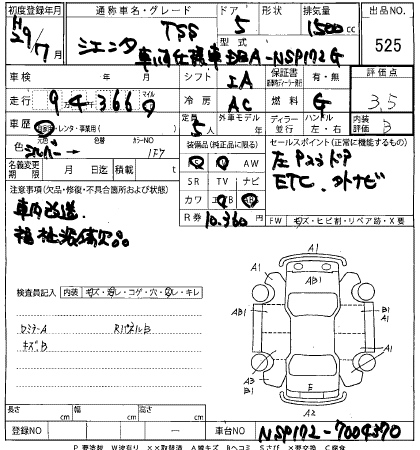 初度登録年月 通称車名・グレード ドア 形状 排気量 出品NO.
H29/7月 シエンタ TSS 5 1500cc 525
型式
車両仕様車 -NSP172G
車検 年 月 シフト IA 保証書 有・無 評価点
走行 94366 マイル 冷房 AC 燃料 G 3.5
車歴 自家用・レンタ・事業用( ) 定員 5人 外車モデル 年 ディーラー 並行 ハンドル 左・右 内装評価 B
色 シルバー カラーNO 1F7
装備品(純正品に限る) セールスポイント(正常に機能するもの)
AW
左Pスライドドア
名義変更期限 月 日 積載 t SR TV ナビ ETC. 外ナビ
注意事項(欠品・修復・不具合箇所および状態) カワ
車内改造. R券 10,360円 FW キズ・ヒビ割・リペア跡・X要
福祉装備欠品
検査員記入 内装 キズ・汚レ・コゲ・穴・スレ・キレ
A1
A1 AB1 A1
B1
A1
ロミラーA RパネルB
キズB
AB1
A1 A3
B1 B1
E
A2
長さ cm 幅 cm 高さ cm
登録NO 車台NO NSP172-7004370
P 要塗装 W波有り ××取替済 A線キズ Bヘコミ Sさび ×要交換 C腐食